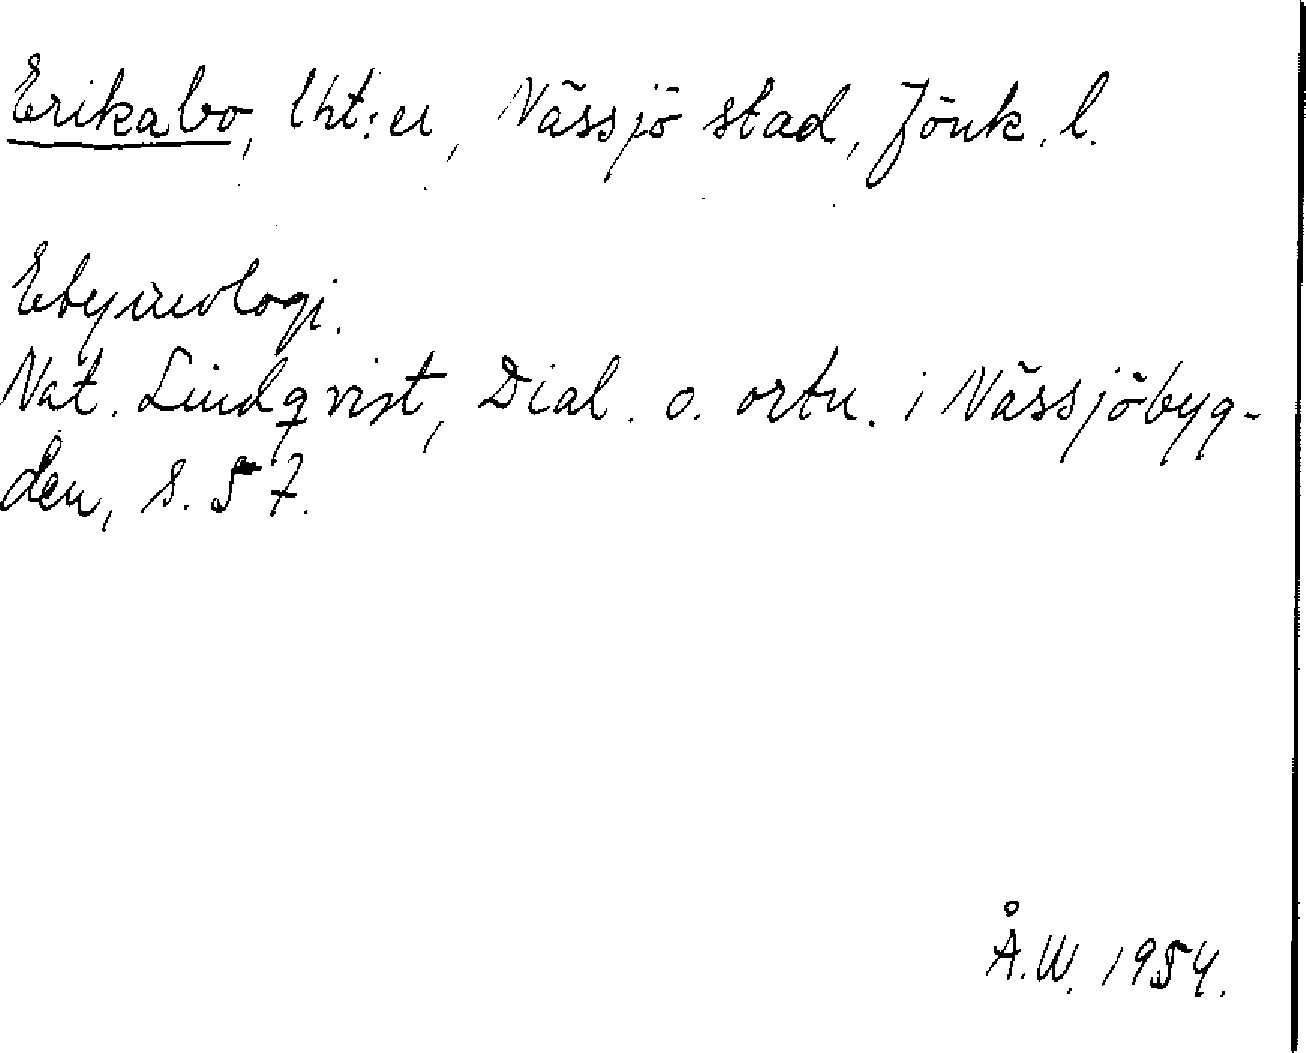 Erikabo, lht:er, Nässjö stad, Jönk. l.
Etymologi.
Nat. Lindqvist, Dial. o. ortn. i Nässjöbyg-
den, s. 57.
Å.W. 1954.